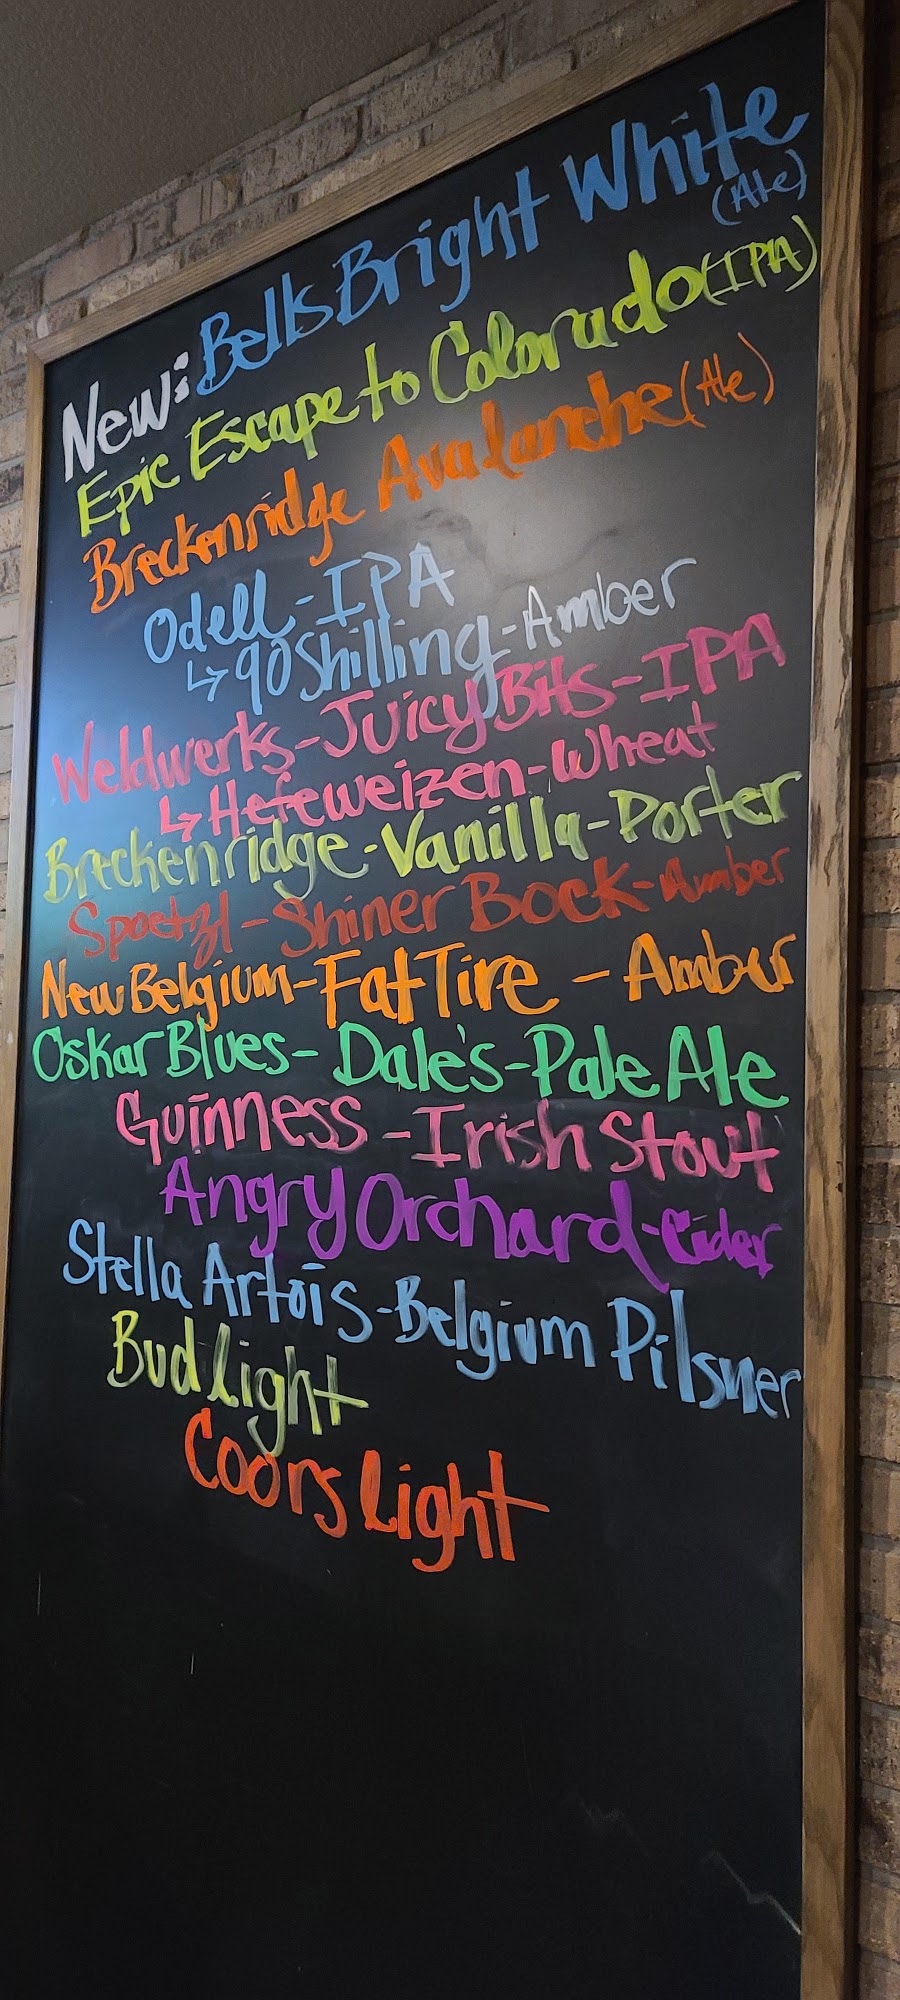 New: Bells Bright White
(Ale)
Epic Escape to Colorado (IPA)
Breckenridge Avalanche (Ale)
Odell - IPA
↳ 90 Shilling - Amber
Weldwerks - Juicy Bits - IPA
↳ Hefeweizen - Wheat
Breckenridge - Vanilla - Porter
Spoetzl - Shiner Bock - Amber
New Belgium - Fat Tire - Amber
Oskar Blues - Dale's - Pale Ale
Guinness - Irish Stout
Angry Orchard - Cider
Stella Artois - Belgium Pilsner
Bud light
Coors light